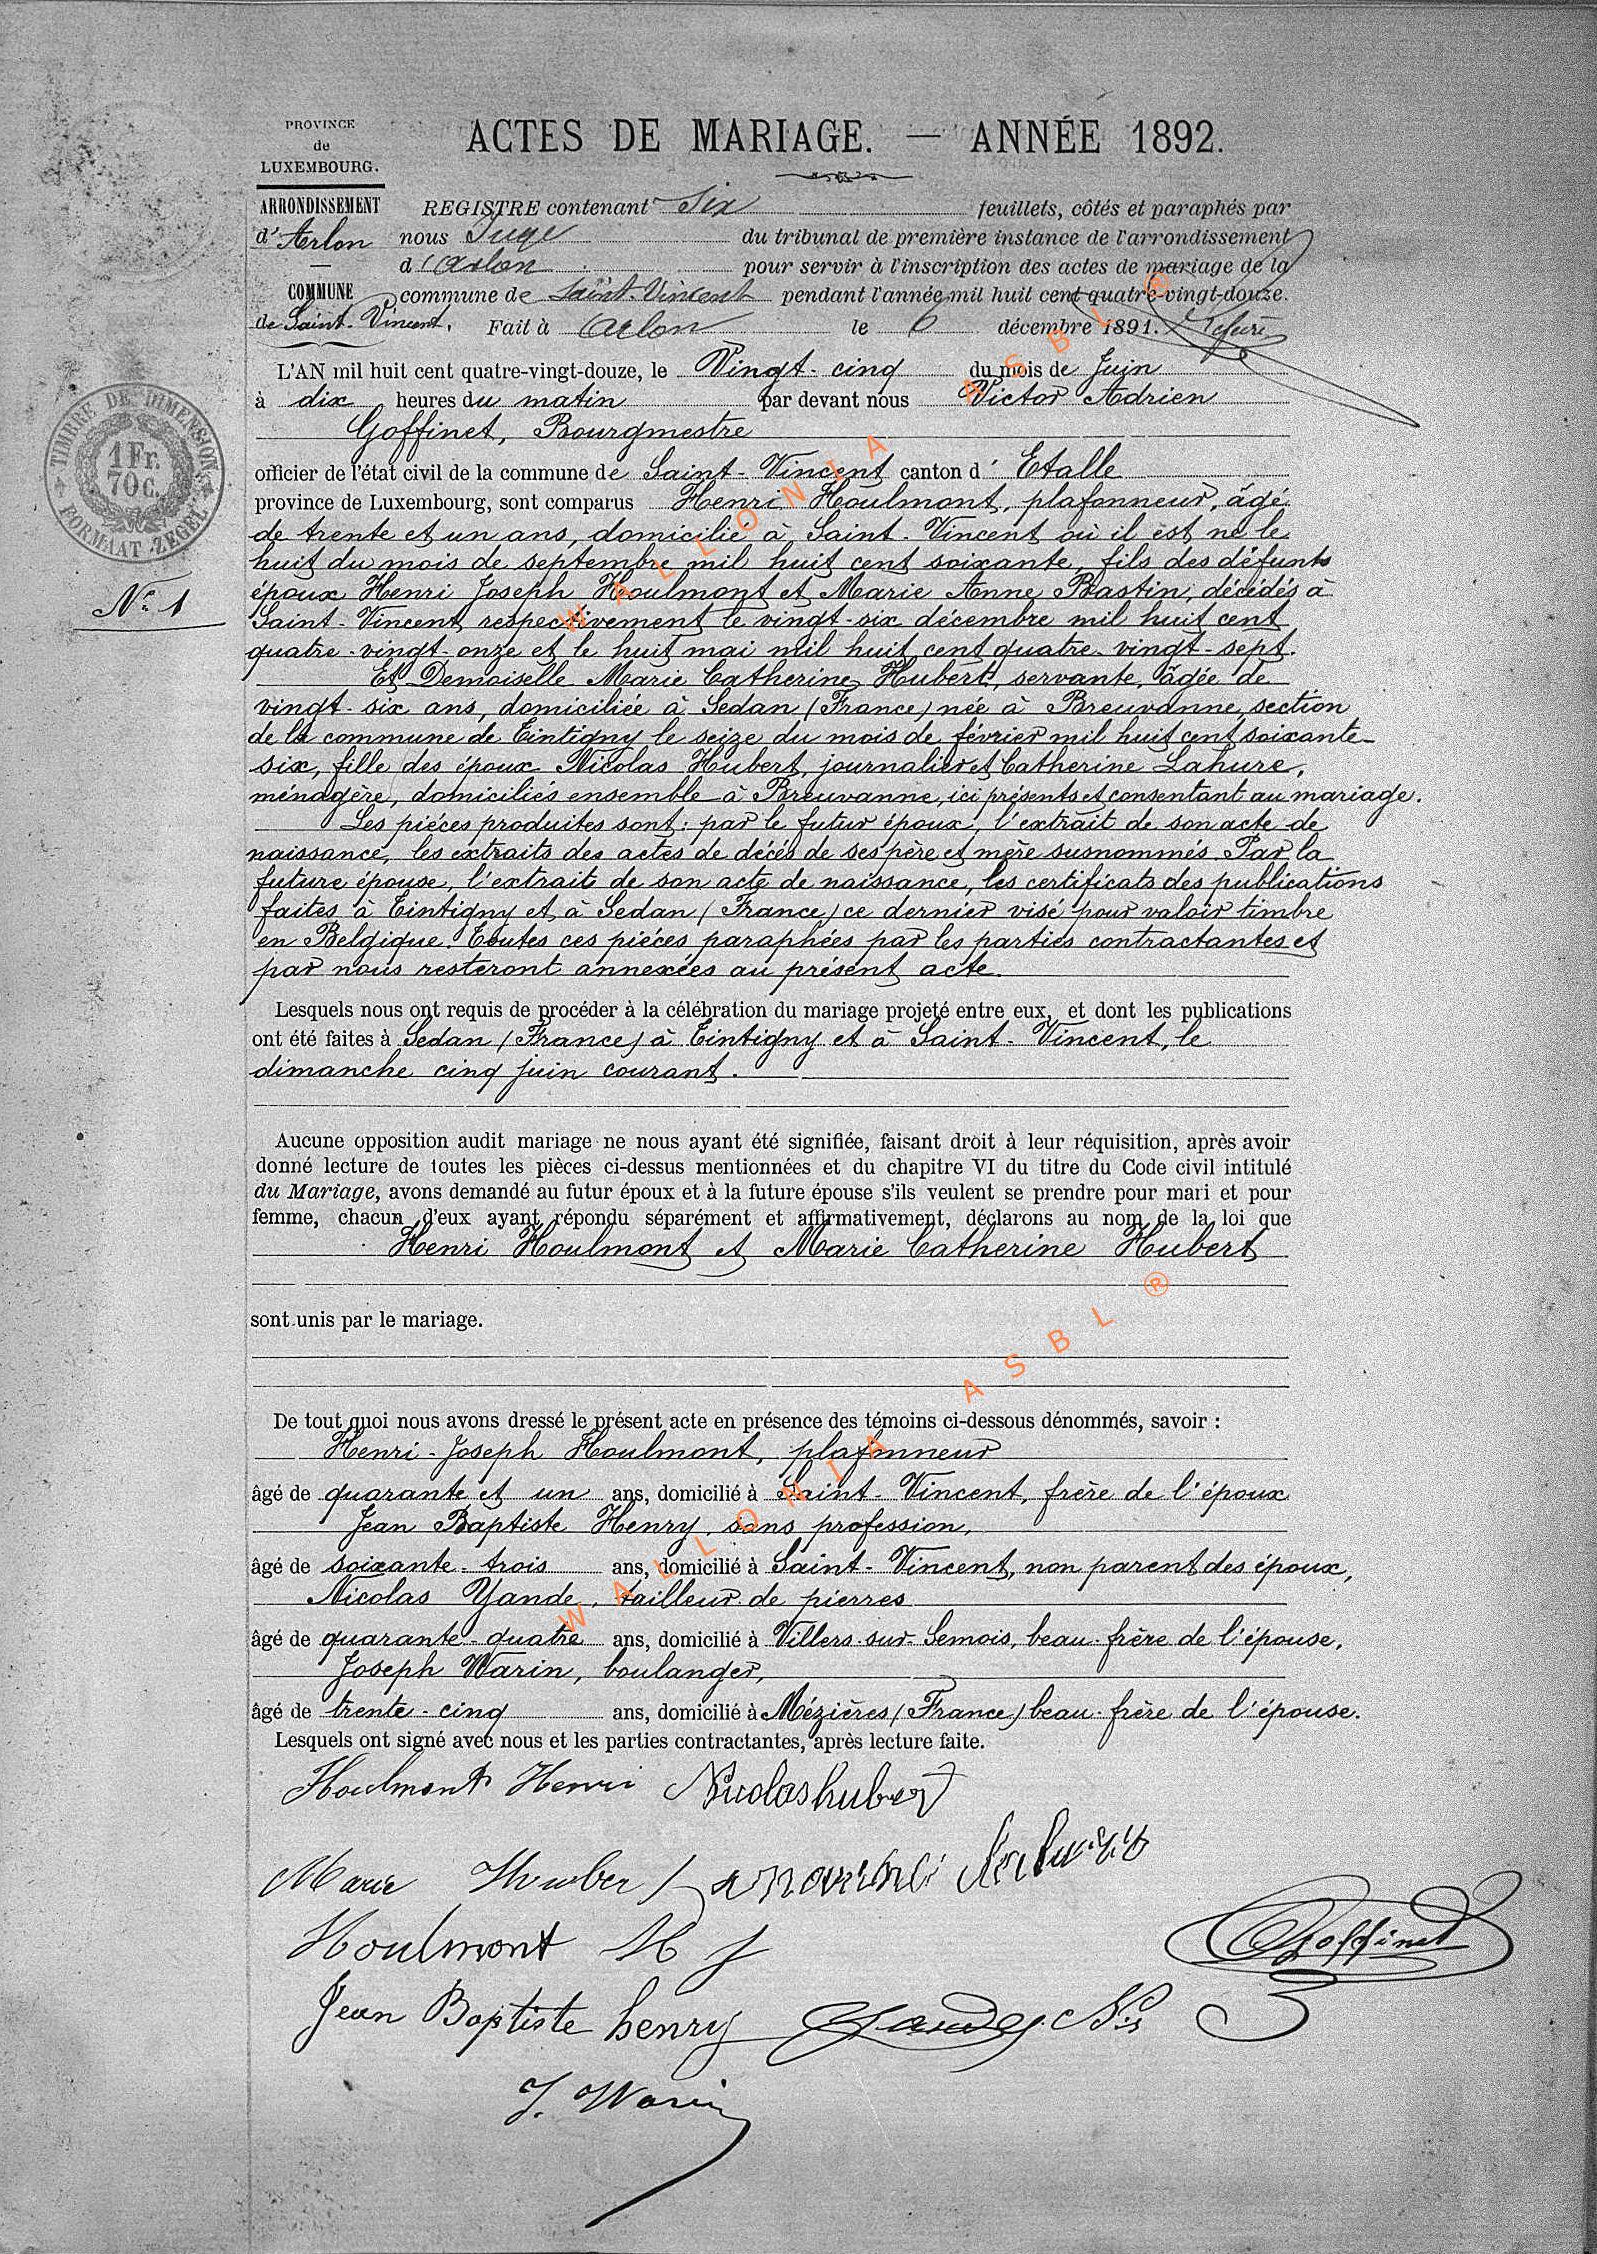 PROVINCE
de
LUXEMBOURG.
ACTES DE MARIAGE. — ANNÉE 1892.
ARRONDISSEMENT
d'Arlon
COMMUNE
de Saint-Vincent.
REGISTRE contenant Six feuillets, côtés et paraphés par
nous Juge du tribunal de première instance de l'arrondissement
d'Arlon pour servir à l'inscription des actes de mariage de la
commune de Saint-Vincent pendant l'année mil huit cent quatre-vingt-douze.
Fait à Arlon le 6 décembre 1891.
TIMBRE DE DIMENSION
1 Fr.
70 C.
FORMAAT ZEGEL
L'AN mil huit cent quatre-vingt-douze, le Vingt-cinq du mois de Juin
à dix heures du matin par devant nous Victor Adrien
Goffinet, Bourgmestre
officier de l'état civil de la commune de Saint-Vincent canton d'Etalle
province de Luxembourg, sont comparus Henri Houlmont, plafonneur, âgé
de trente et un ans, domicilié à Saint-Vincent où il est né le
huit du mois de septembre mil huit cent soixante, fils des défunts
N° 1
époux Henri Joseph Houlmont et Marie Anne Bastin, décédés à
Saint-Vincent respectivement le vingt-six décembre mil huit cent
quatre-vingt-onze et le huit mai mil huit cent quatre-vingt-sept.
Et Demoiselle Marie Catherine Hubert, servante, âgée de
vingt-six ans, domiciliée à Sedan (France) née à Breuvanne, section
de la commune de Tintigny le seize du mois de février mil huit cent soixante-
six, fille des époux Nicolas Hubert, journalier et Catherine Lahure,
ménagère, domiciliés ensemble à Breuvanne, ici présents et consentant au mariage.
Les pièces produites sont: par le futur époux, l'extrait de son acte de
naissance, les extraits des actes de décès de ses père et mère susnommés. Par la
future épouse, l'extrait de son acte de naissance, les certificats des publications
faites à Tintigny et à Sedan (France) ce dernier visé pour valoir timbre
en Belgique. Toutes ces pièces paraphées par les parties contractantes et
par nous resteront annexées au présent acte.
Lesquels nous ont requis de procéder à la célébration du mariage projeté entre eux, et dont les publications
ont été faites à Sedan (France) à Tintigny et à Saint-Vincent, le
dimanche cinq juin courant.
Aucune opposition audit mariage ne nous ayant été signifiée, faisant droit à leur réquisition, après avoir
donné lecture de toutes les pièces ci-dessus mentionnées et du chapitre VI du titre du Code civil intitulé
du Mariage, avons demandé au futur époux et à la future épouse s'ils veulent se prendre pour mari et pour
femme, chacun d'eux ayant répondu séparément et affirmativement, déclarons au nom de la loi que
Henri Houlmont et Marie Catherine Hubert
sont unis par le mariage.
De tout quoi nous avons dressé le présent acte en présence des témoins ci-dessous dénommés, savoir :
Henri-Joseph Houlmont, plafonneur
âgé de quarante et un ans, domicilié à Saint-Vincent, frère de l'époux
Jean Baptiste Henry, sans profession,
âgé de soixante-trois ans, domicilié à Saint-Vincent, non parent des époux,
Nicolas Yande, tailleur de pierres
âgé de quarante-quatre ans, domicilié à Villers-sur-Semois, beau-frère de l'épouse,
Joseph Warin, boulanger,
âgé de trente-cinq ans, domicilié à Mézières (France) beau-frère de l'épouse.
Lesquels ont signé avec nous et les parties contractantes, après lecture faite.
Houlmont Henri Nicolas hubert
Marie Huber
Houlmont H J
Goffinet
Jean Baptiste henry Yande Nis
J. Warin
WALLONIA ASBL ®
WALLONIA ASBL ®